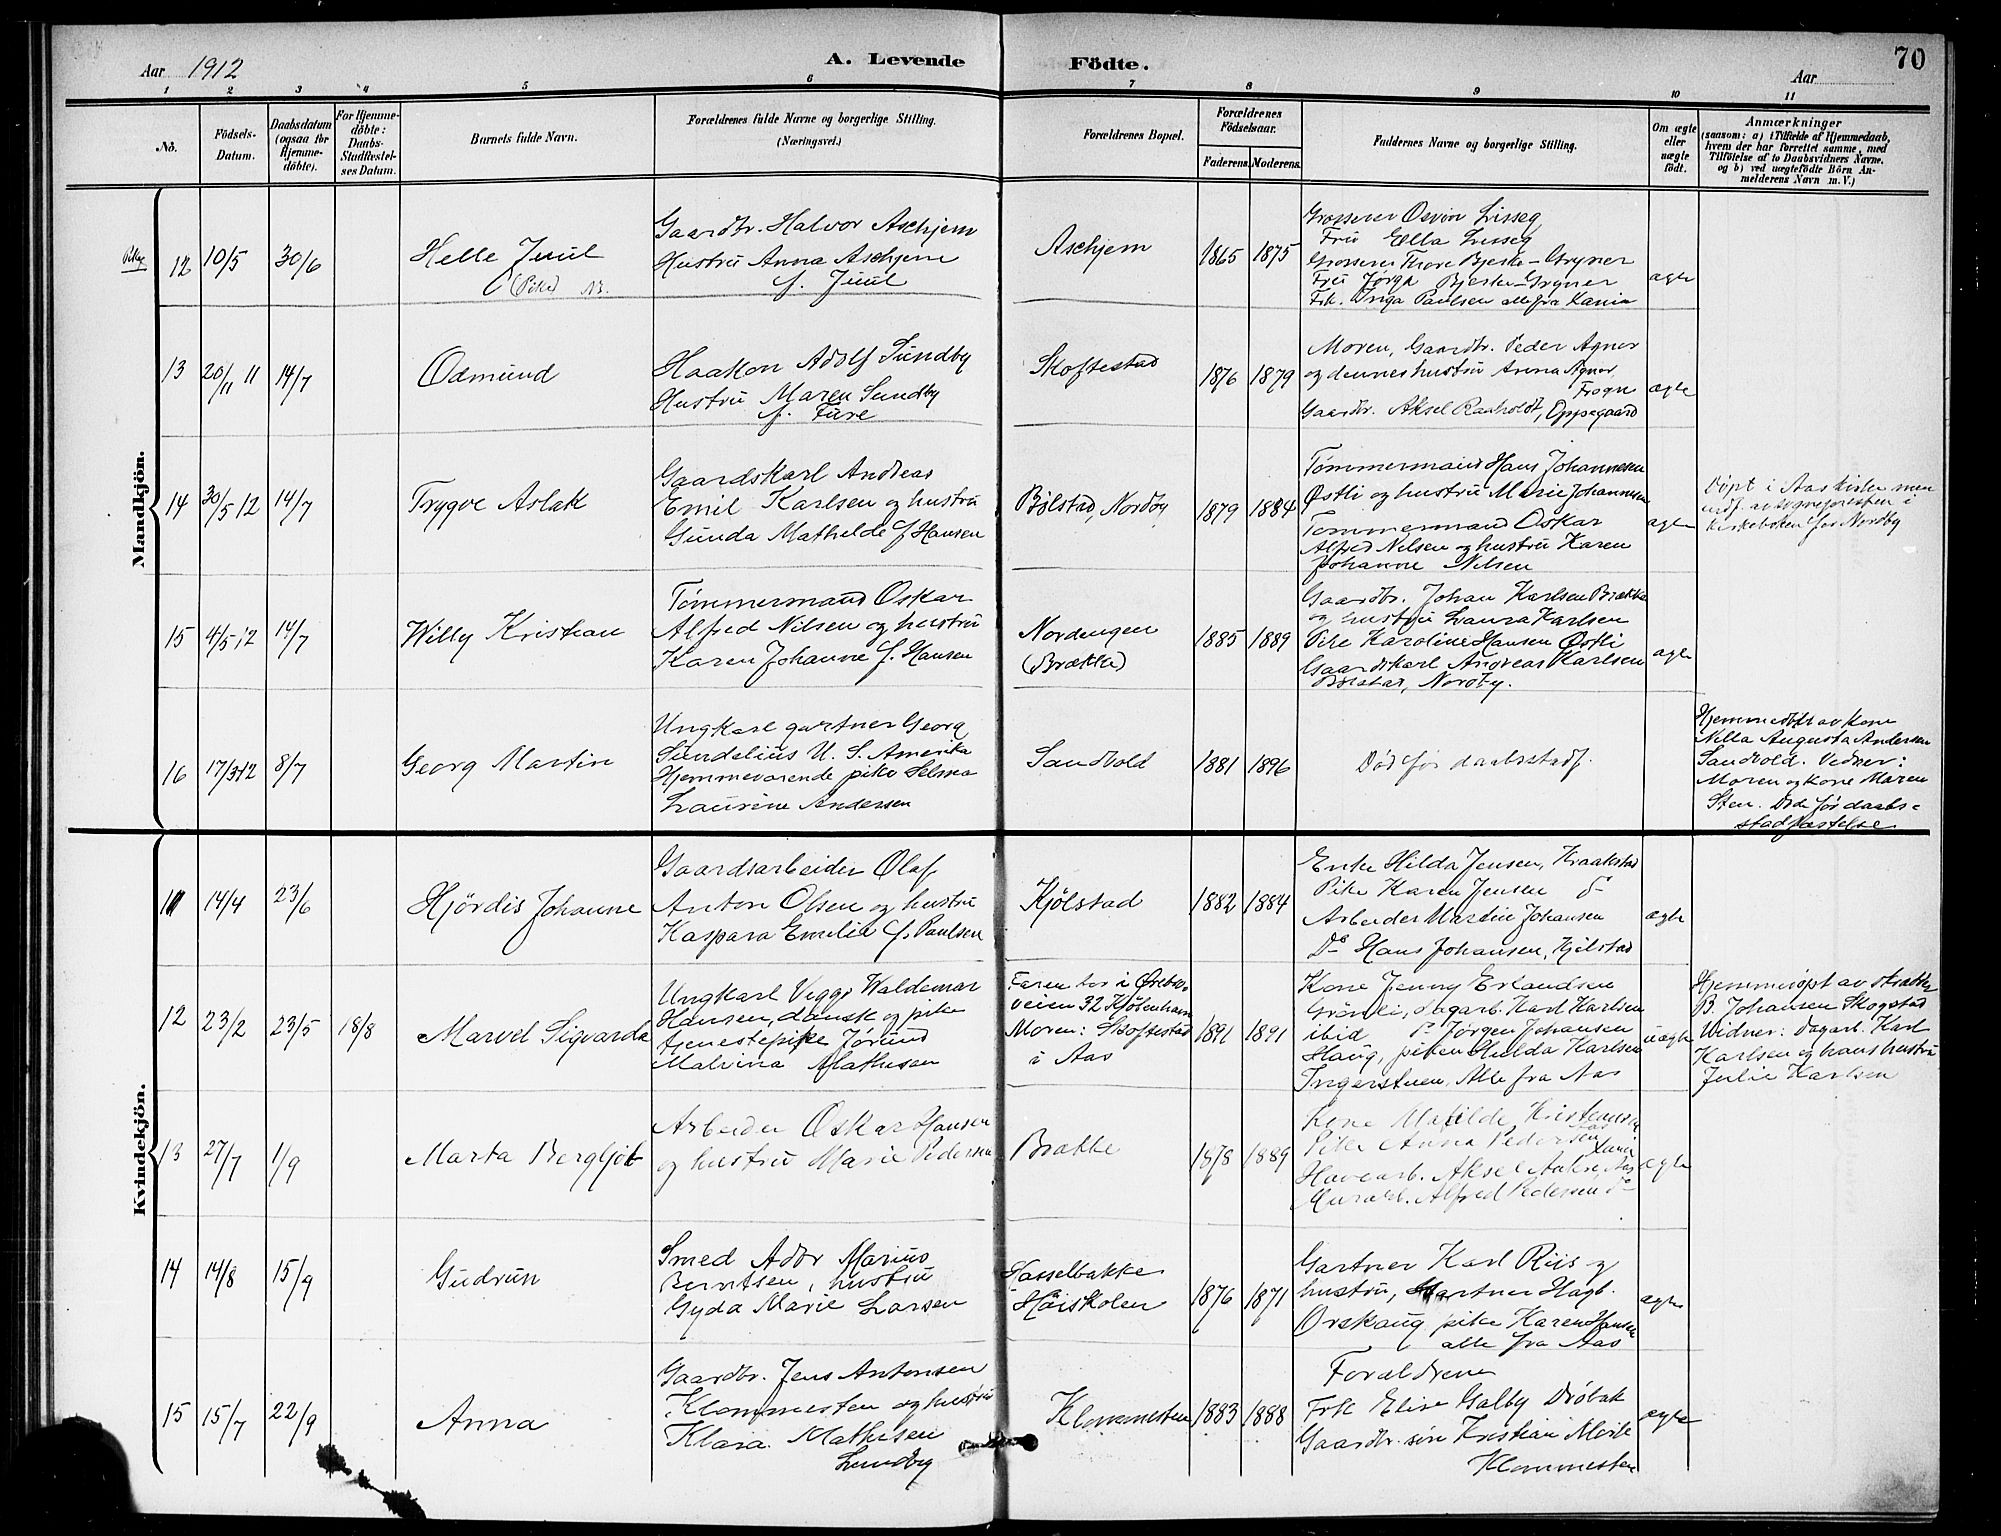 Aar 1912
A. Levende Födte.
70
Aar
1 2 3 4 5 6 7 8 9 10 11
No.
Födsels-Datum.
Daabsdatum (ogsaa for Hjemme-döbte).
For Hjemme-döbte: Daabs-Stadfæstel-ses Datum.
Barnets fulde Navn.
Forældrenes fulde Navne og borgerlige Stilling.
(Næringsvei.)
Forældrenes Bopæl.
Forældrenes Födselsaar.
Faderens. Moderens.
Faddernes Navne og borgerlige Stilling.
Om ægte eller uægte födt.
Anmærkninger
(saasom: a) i Tilfælde af Hjemmedaab,
hvem der har forrettet samme, med
Tilföielse af to Daabsvidners Navne.
og b) ved uægtefödte Börn An-
melderens Navn m. V.)
Mandkjön.
Pike
12 10/5 30/6
Helle Juul
(Pike) NB.
Gaardbr. Halvor Aschjem
Hustru Anna Aschjem
f. Juul
Aschjem
1865 1875
Grosserer Osvin Lisseg
Fru Ella Lisseg
Grosserer Thore Bjerke-Gryner
Fru Jørga Bjerke-Gryner
Frk. Inga Paulsen alle fra Kania
ægte
13 20/11 11 14/7
Odmund
Haakon Adolf Sundby
Hustru Maren Sundby
f. Fure
Skoftestad
1876 1879
Moren, Gaardbr. Peder Agnor
og dennes hustru Anna Agnor,
Frogn
Gaardbr. Aksel Raaholdt, Oppegaard
ægte
14 30/5 12 14/7
Trygve Aslak
Gaardskarl Andreas
Emil Karlsen og hustru
Gunda Mathilde f. Hansen
Bølstad, Nordby
1879 1884
Tømmermand Hans Johannesen
Østli og hustru Marie Johannesen
Tømmermand Oskar
Alfred Nilsen og hustru Karen
Johanne Nilsen
ægte
Døpt i Aas kirke men
indf. av sognepresten i
kirkeboken for Nordby
15 4/5 12 14/7
Willy Kristian
Tømmermand Oskar
Alfred Nilsen og hustru
Karen Johanne f. Hansen
Nordengen
(Brække)
1885 1889
Gaardbr. Johan Karlsen Brække
og hustru Laura Karlsen
Pike Karoline Hansen Østli
Gaardskarl Andreas Karlsen
Bølstad, Nordby.
ægte
16 17/3 12 8/7
Georg Martin
Ungkarl gartner Georg
Sundelius U. S. Amerika
Hjemmeværende pike Selma
Laurine Andersen
Sandvold
1881 1896
Død før daabsstadf.
Hjemmedøbt av kone
Nella Augusta Andersen
Sandvold. Vidner:
Moren og kone Maren
Sten. Døde før daabs-
stadfæstelse
Kvindekjön.
11 14/4 23/6
Hjördis Johanne
Gaardsarbeider Olaf
Anton Olsen og hustru
Kaspara Emilie f. Paulsen
Kjølstad
1882 1884
Enke Hilda Jensen, Kraakstad
Pike Karen Jensen do
Arbeider Martin Johansen
Do Hans Johansen, Kjølstad
ægte
12 23/2 23/5 18/8
Marvel Sigvarda
Ungkarl Viggo Waldemar
Hansen, dansk og pike
tjenestepike Jørund
Malvina Mathisen
Faren bor i Örebro-
veien 32 Kjöbenhavn
Moren: Skoftestad
i Aas
1891 1891
Kone Jenny Erlandsen
Grönli, dagarb. Karl Karlsen
ibid do Jörgen Johansen
Haug, piken Hulda Karlsen
Ingerstuen. Alle fra Aas
uægte
Hjemmedöpt av
B. Johansen Skogstad
Vidner: dagarb. Karl
Karlsen og hans hustru
Julie Karlsen
13 27/7 1/9
Marta Bergljot
Arbeider Oskar Hansen
og hustru Marie Pedersen
Brække
1878 1889
Kone Matilde Kristiansen
Aas
Pike Anna Pedersen
Havearb. Aksel Aas
Murarb. Alfred Pedersen do
ægte
14 14/8 15/9
Gudrun
Smed Ador Marius
Berntsen, hustru
Gyda Marie Larsen
Hasselbakke
Höiskolen
1876 1871
Gartner Karl Riis og
hustru, Gartner Hagb.
Orskaug pike Karen Hansen
alle fra Aas
ægte
15 15/7 22/9
Anna
Gaardbr. Jens Antonsen
Klommesten og hustru
Klara Mathisen
Lundby
Klommesten
1883 1888
Forældrene
Frk Elise Galby Dröbak
Gaardbr. sön Kristian Moile
Klommesten
ægte